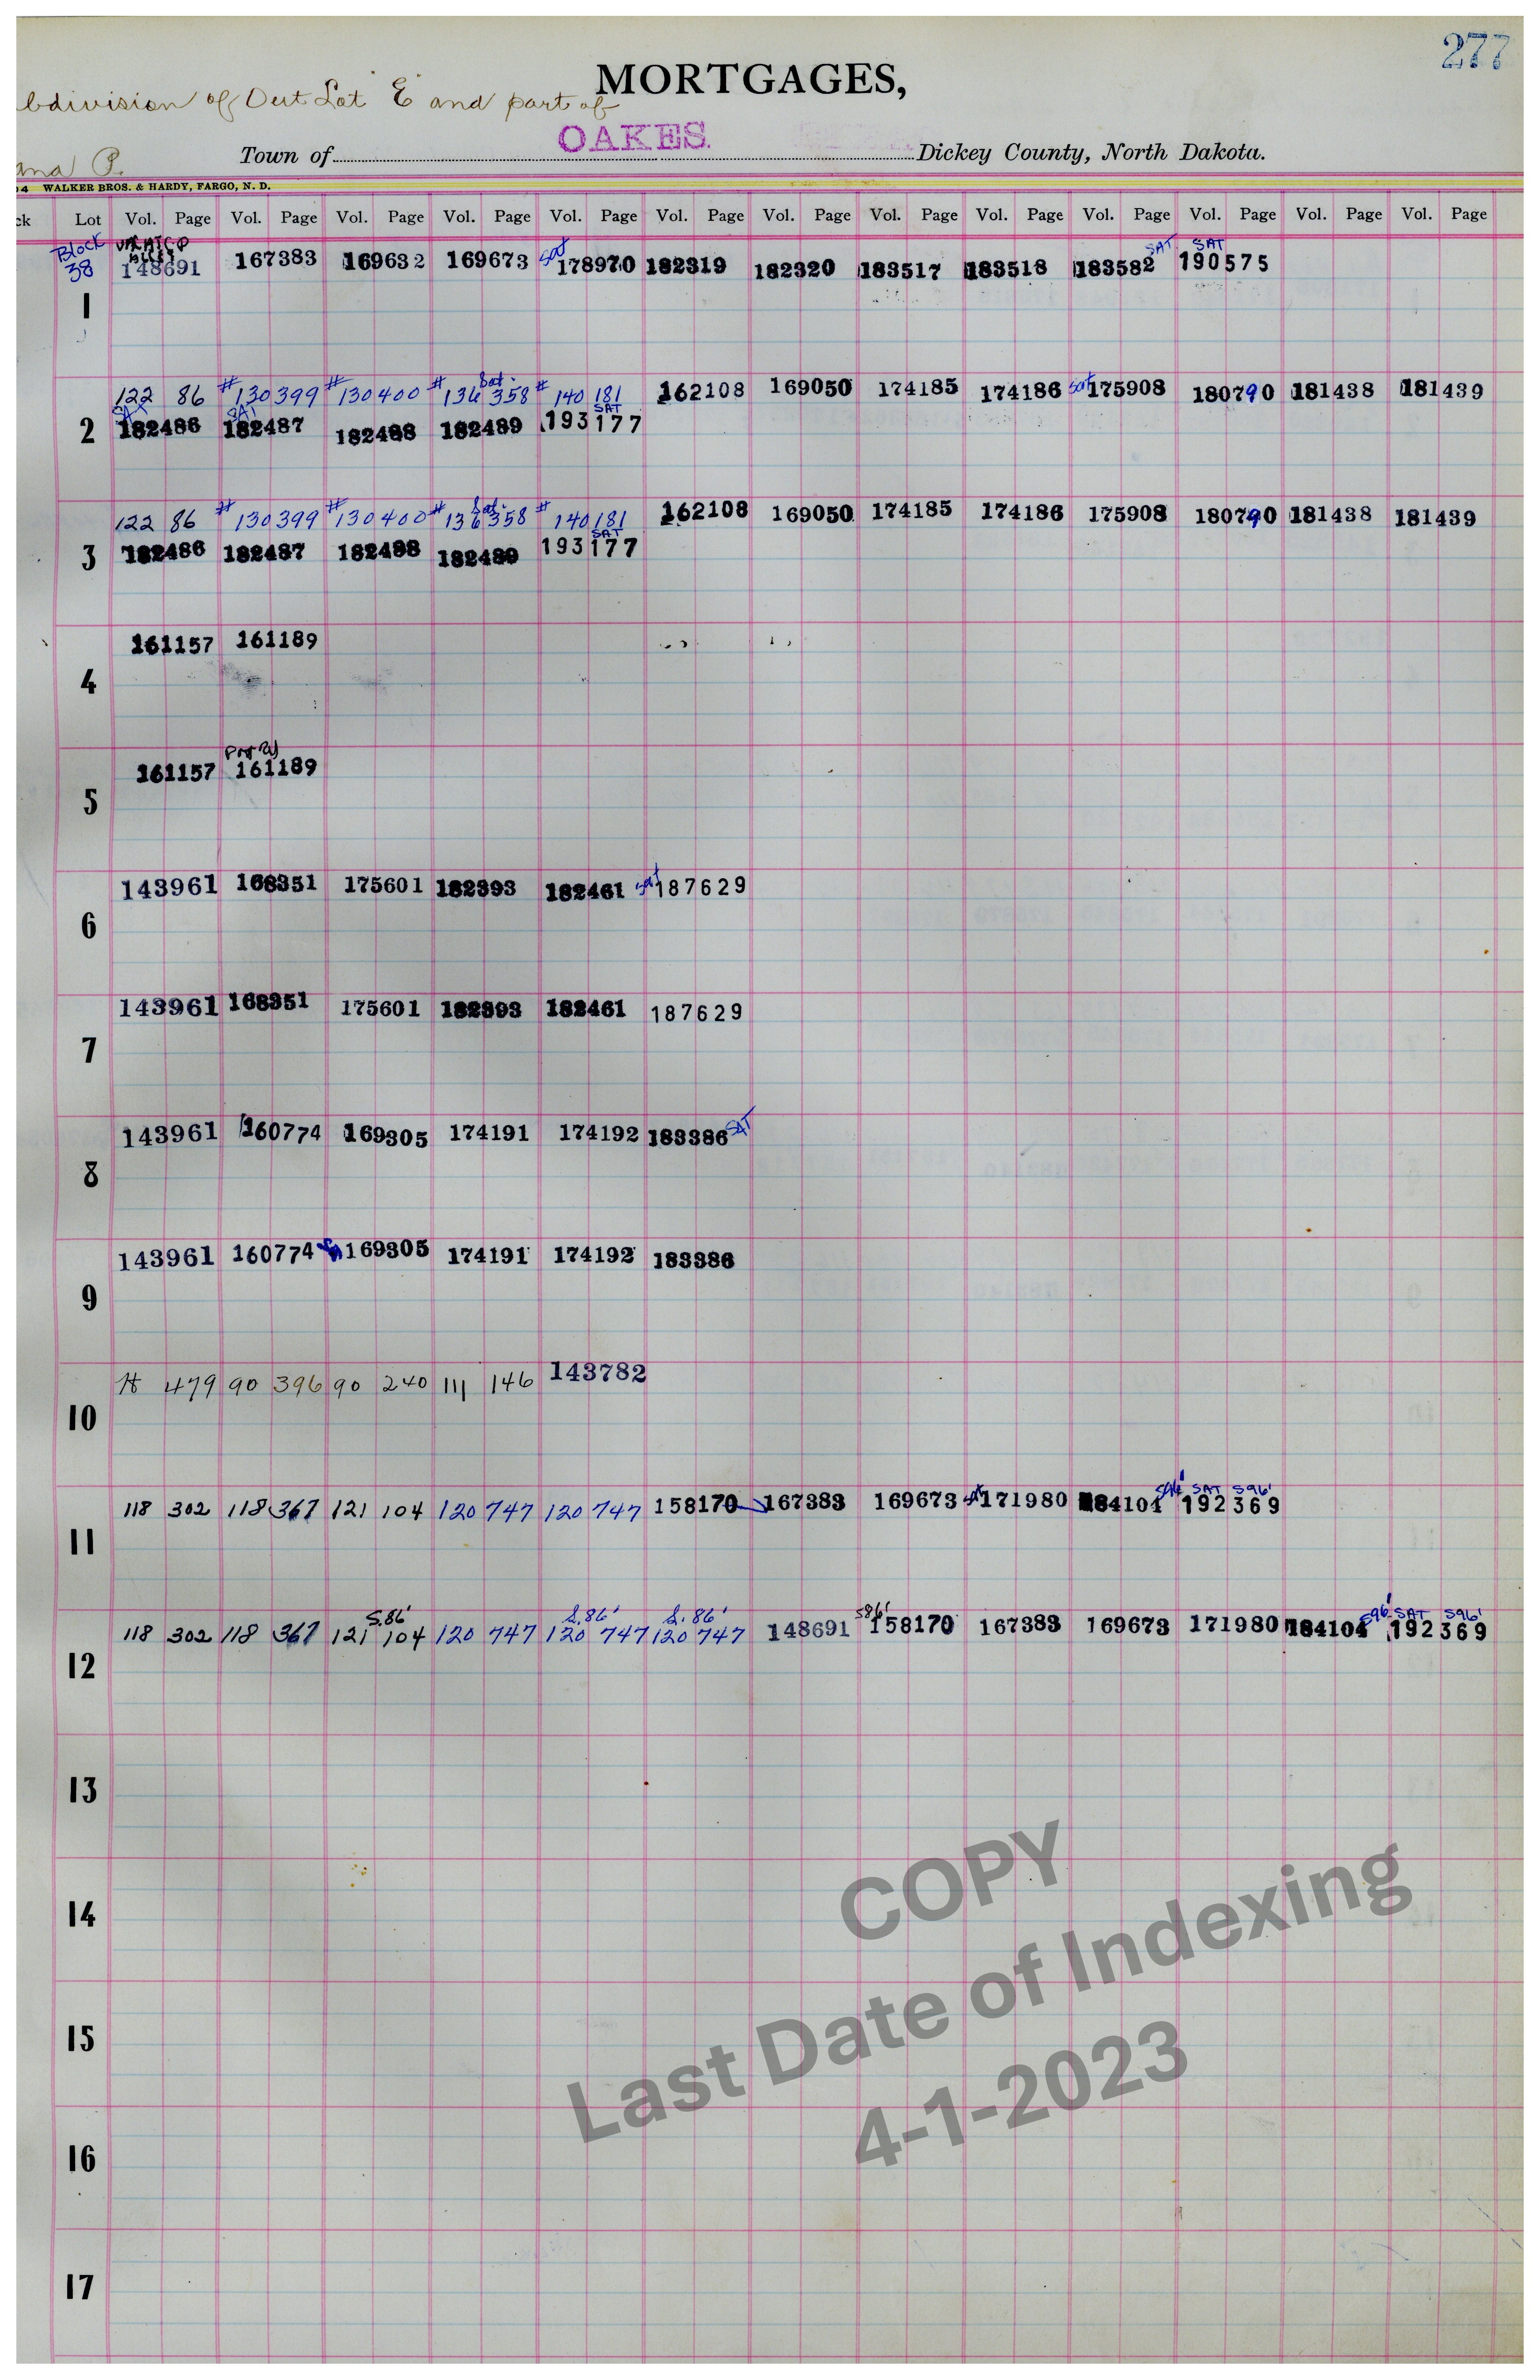 277
MORTGAGES,
bdivision of Out Lot "E" and part of
OAKES.
Town of Dickey County, North Dakota.
and P.
WALKER BROS. & HARDY, FARGO, N. D.
ck Lot Vol. Page Vol. Page Vol. Page Vol. Page Vol. Page Vol. Page Vol. Page Vol. Page Vol. Page Vol. Page Vol. Page Vol. Page Vol. Page
Block SAT SAT
38 148691 167383 169632 169673 Sat 178970 182319 182320 183517 183518 183582 190575
1
Sat.
122 86 #130399 #130400 #136358 #140181 162108 169050 174185 174186 Sat 175908 180790 181438 181439
SAT SAT SAT
2 182486 182487 182488 182489 193177
Sat.
122 86 #130399 #130400 #136358 #140181 162108 169050 174185 174186 175908 180790 181438 181439
SAT
3 182486 182487 182488 182489 193177
161157 161189
4
161157 161189
5
143961 168351 175601 182393 182461 Sat 187629
6
143961 168351 175601 182393 182461 187629
7
143961 160774 169305 174191 174192 183386 SAT
8
143961 160774 169305 174191 174192 183386
9
479 90 396 90 240 111 146 143782
10
S96' SAT S96'
118 302 118 367 121 104 120 747 120 747 158170 167383 169673 Sat 171980 184104 192369
11
S.86' S.86' S.86' S86' S96' SAT S96'
118 302 118 367 121 104 120 747 120 747 120 747 148691 158170 167383 169673 171980 184104 192369
12
13
14
15
16
17
COPY
Last Date of Indexing
4-1-2023